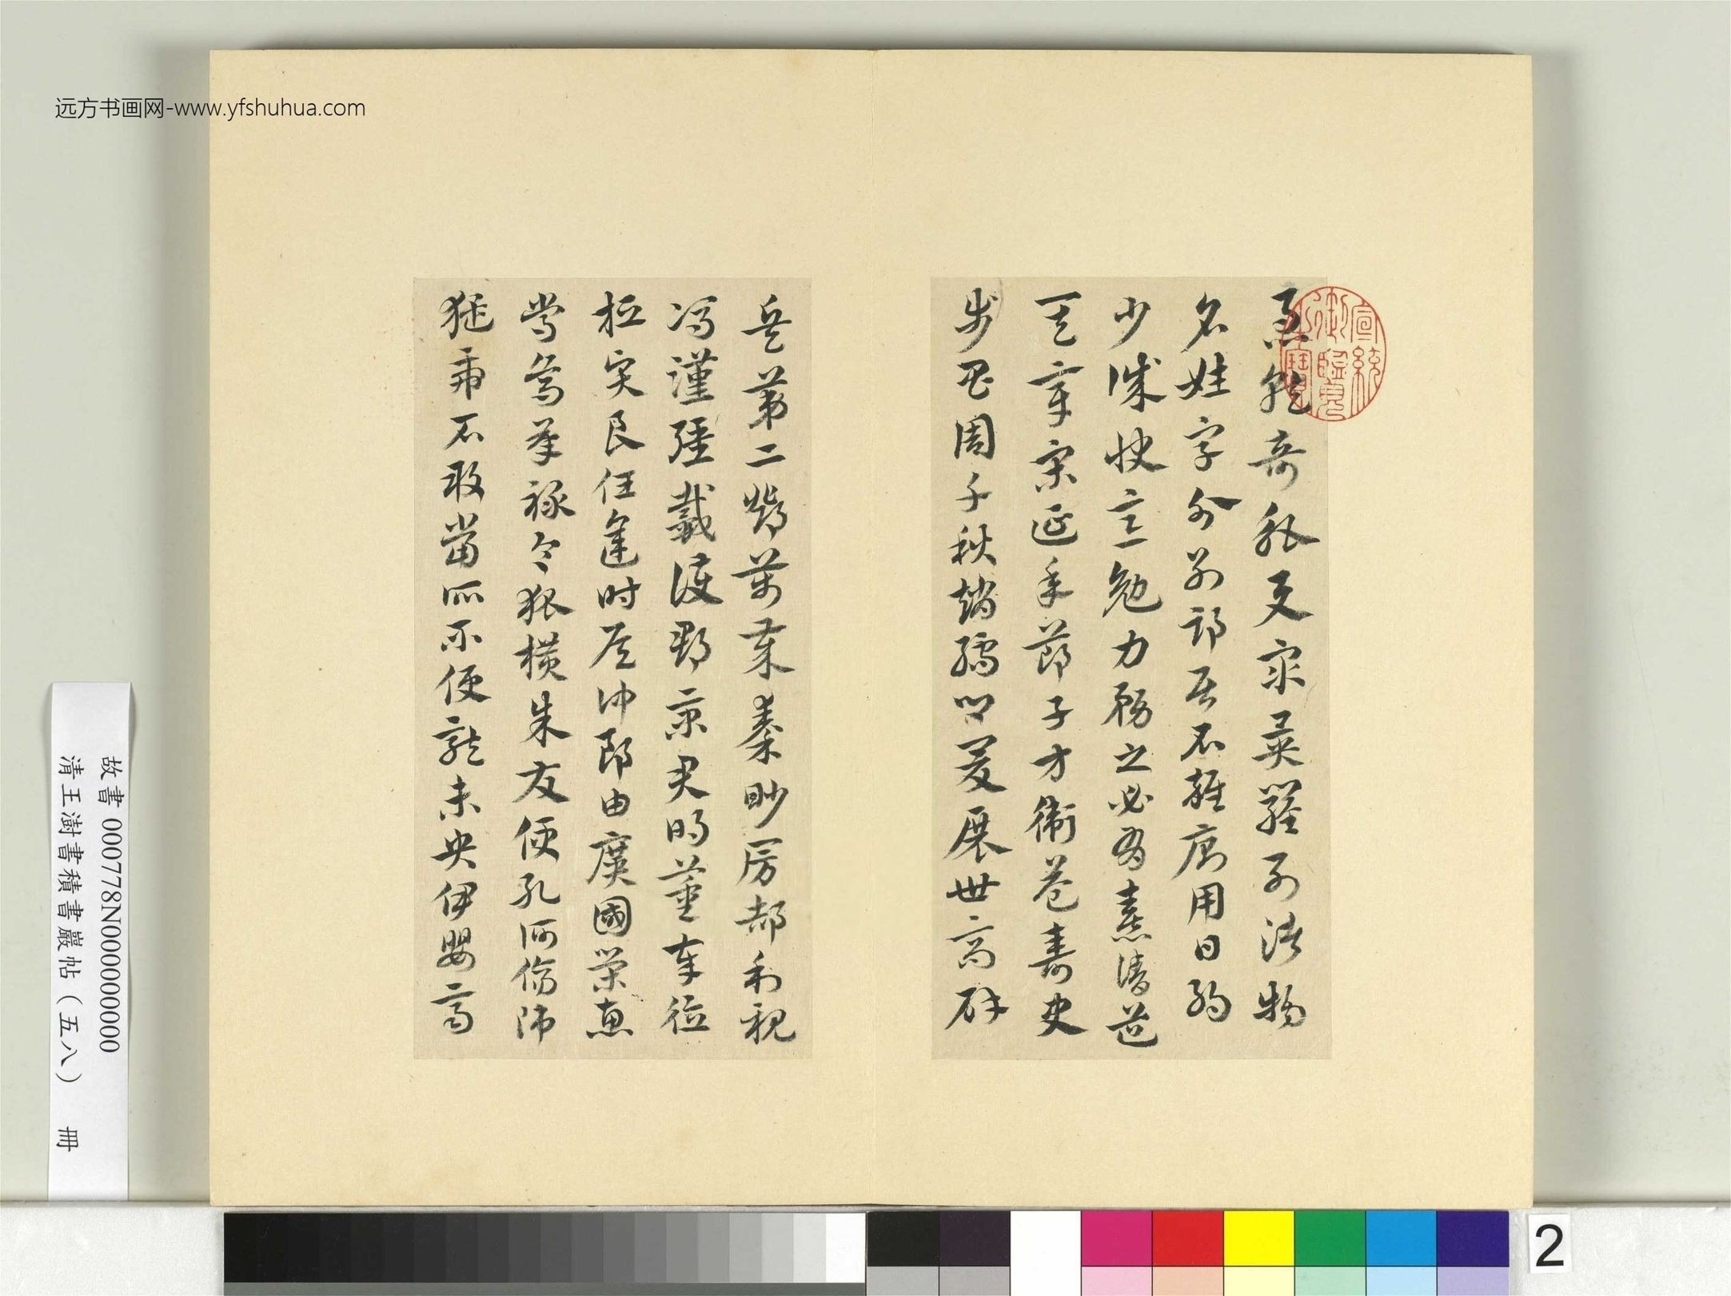 远方书画网-www.yfshuhua.com
急就奇觚與眾異羅列諸物
名姓字分別部居不雜廁用日約
少誠快意勉力務之必有憙請道
其章宋延年鄭子方衛益壽史
步昌周千秋趙孺卿爰展世高辟
宣統御覽之寶
兵第二鄧萬歲秦眇房郝利親
馮漢彊戴護郡景君明董奉德
桓賢良任逢時侯仲郎由廣國榮惠
常烏承祿令狐橫朱交便孔何傷師
猛虎石敢當所不侵龍未央伊嬰齊
故書 000778N000000000
清王澍書積書巖帖（五八） 冊
2